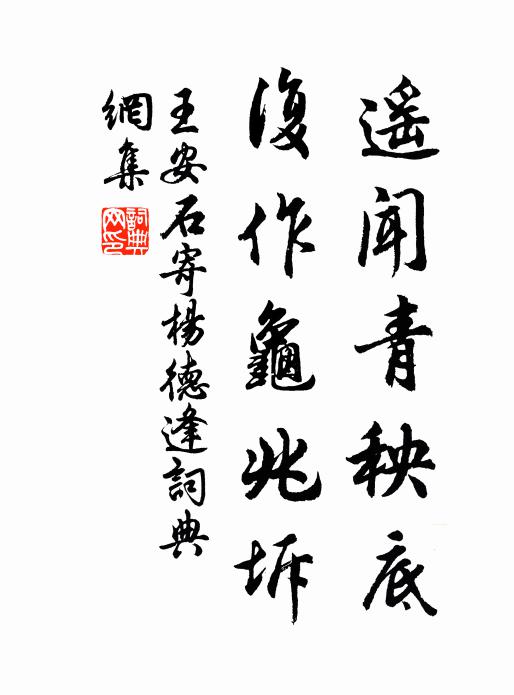 遥聞青秧底
復作龜兆坼
王安石寄楊德逢詞典
網集
詞典
网印